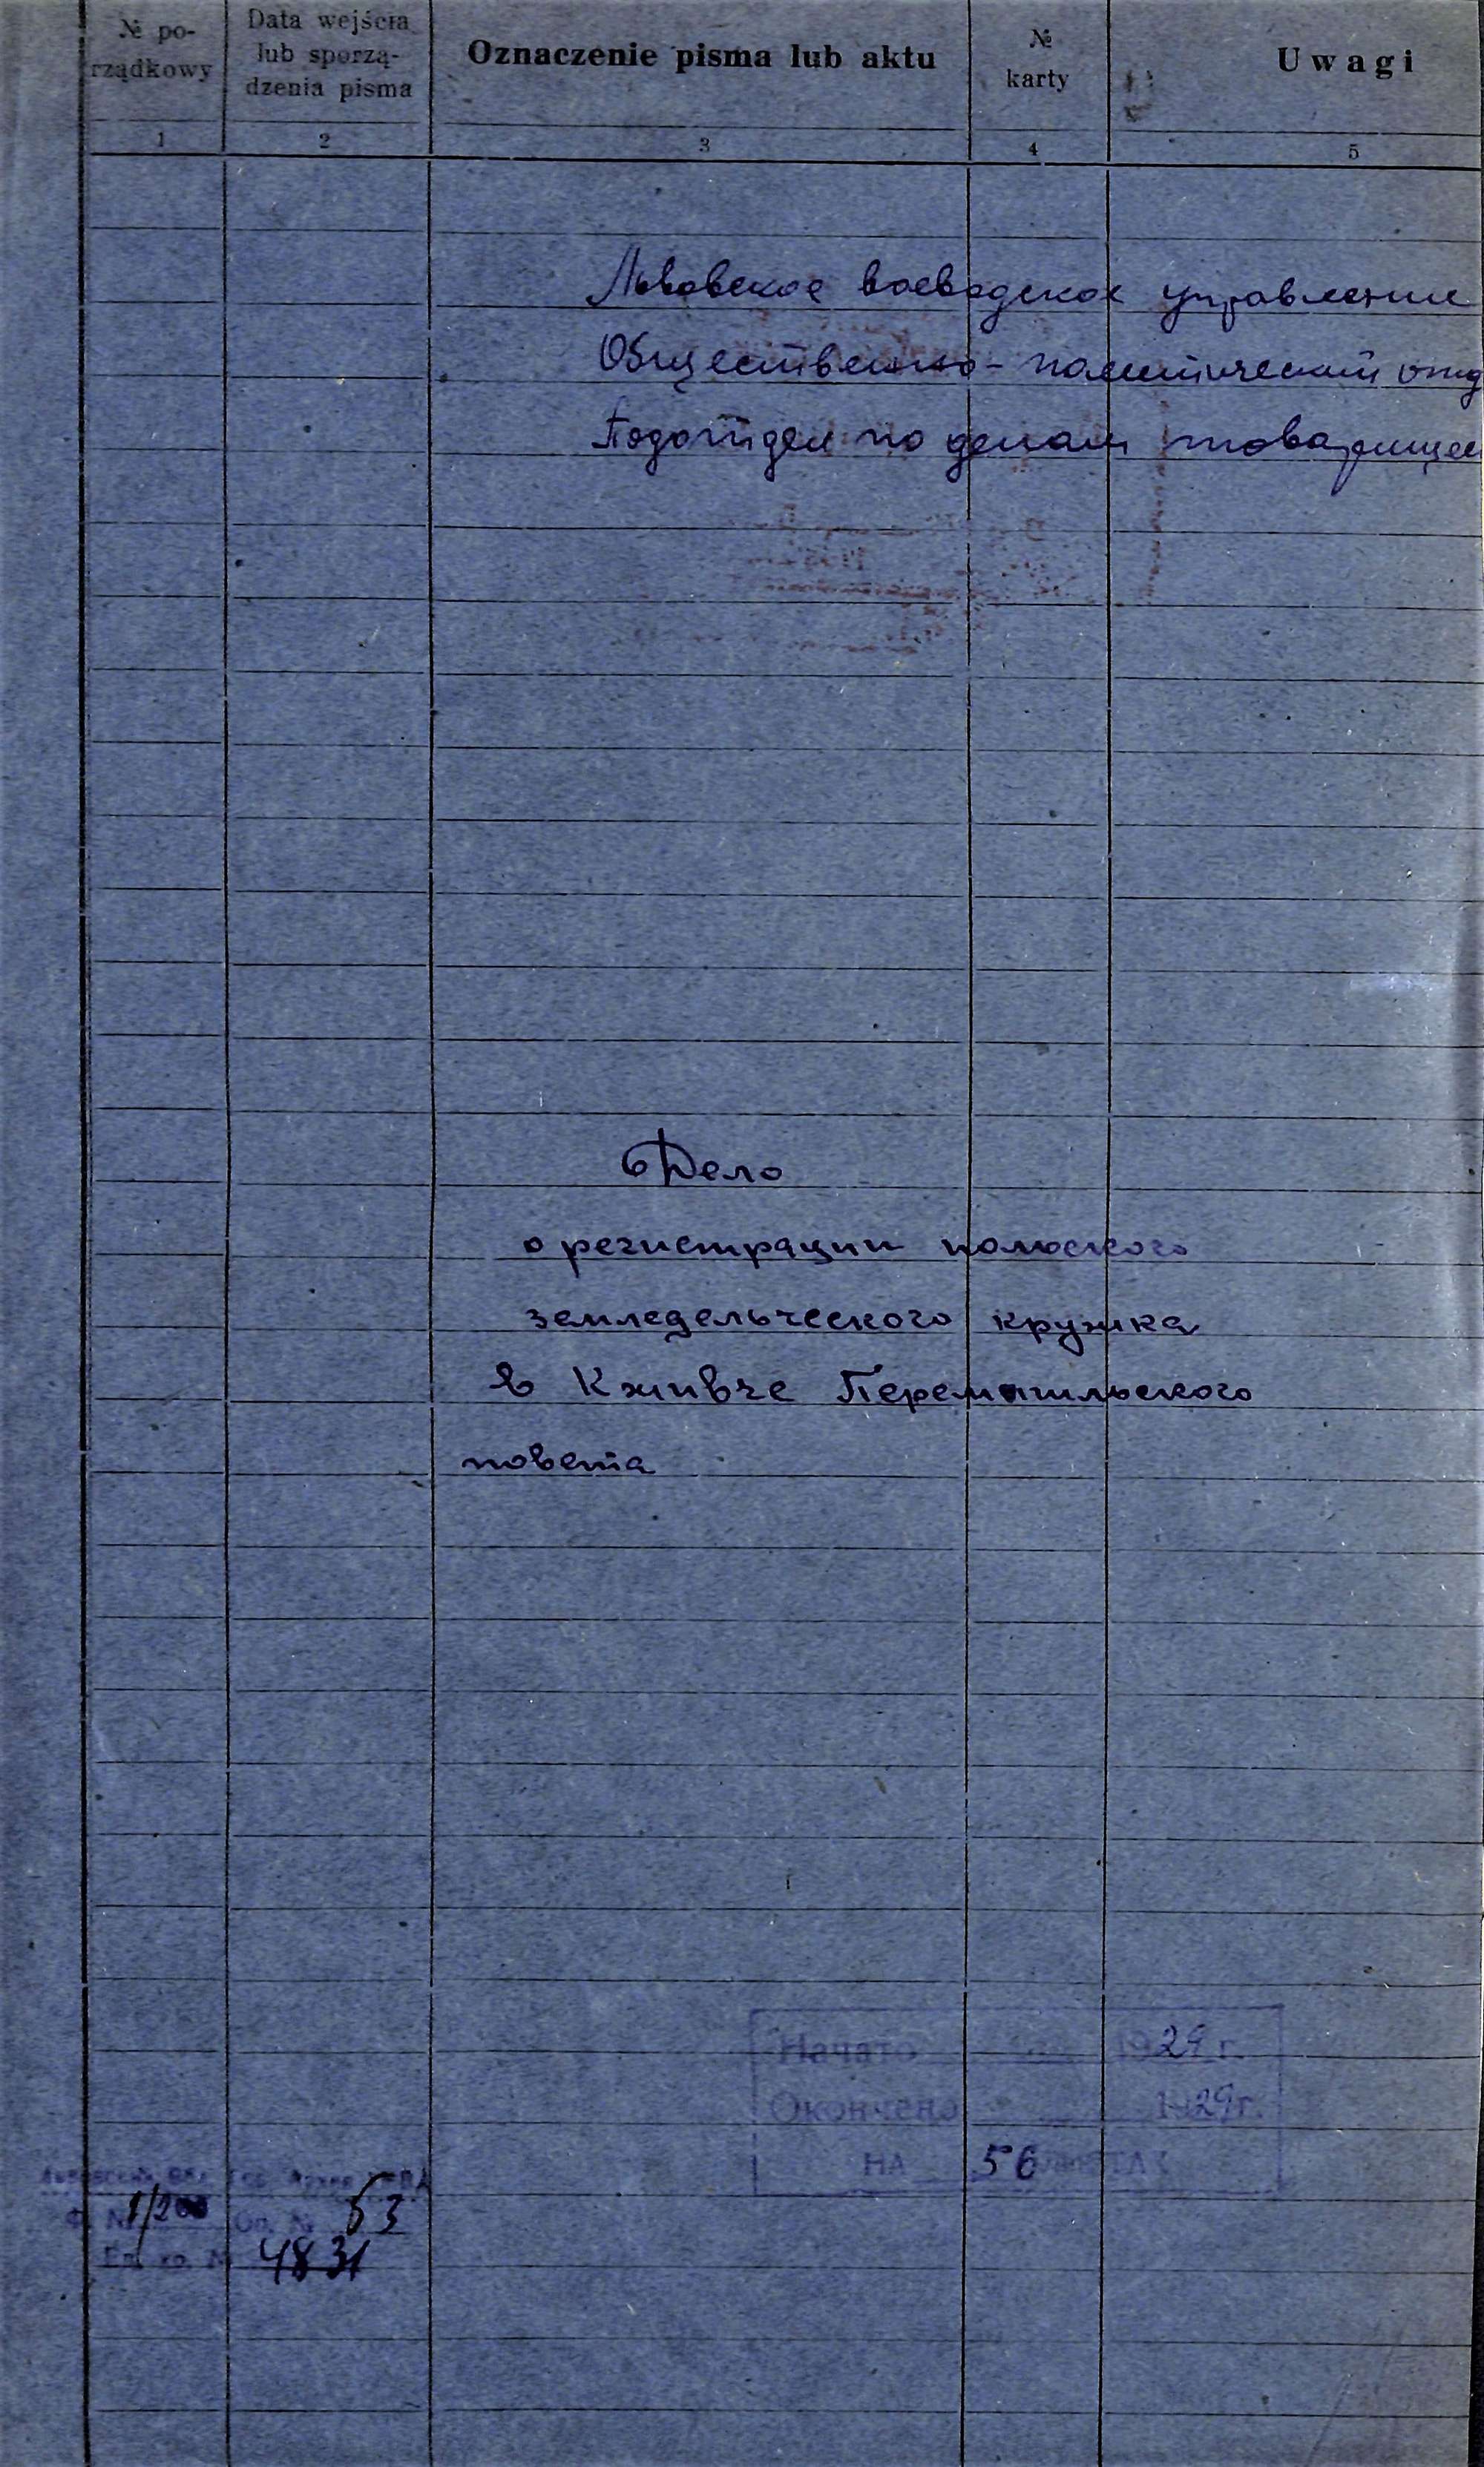 № po-
rządkowy
Data wejścia
lub sporzą-
dzenia pisma
Oznaczenie pisma lub aktu
№
karty
Uwagi
1 2 3 4 5
Львовское воеводское управление
Общественно-политический отд
Подотдел по делам товарищес
Дело
о регистрации польского
земледельческого кружка
в Кживче Перемышльского
повета
Начато 1929 г.
Окончено 1929 г.
НА 56 ЛИСТАХ
Ф. № 1/200 Оп. № 53
Ед. хр. № 4831